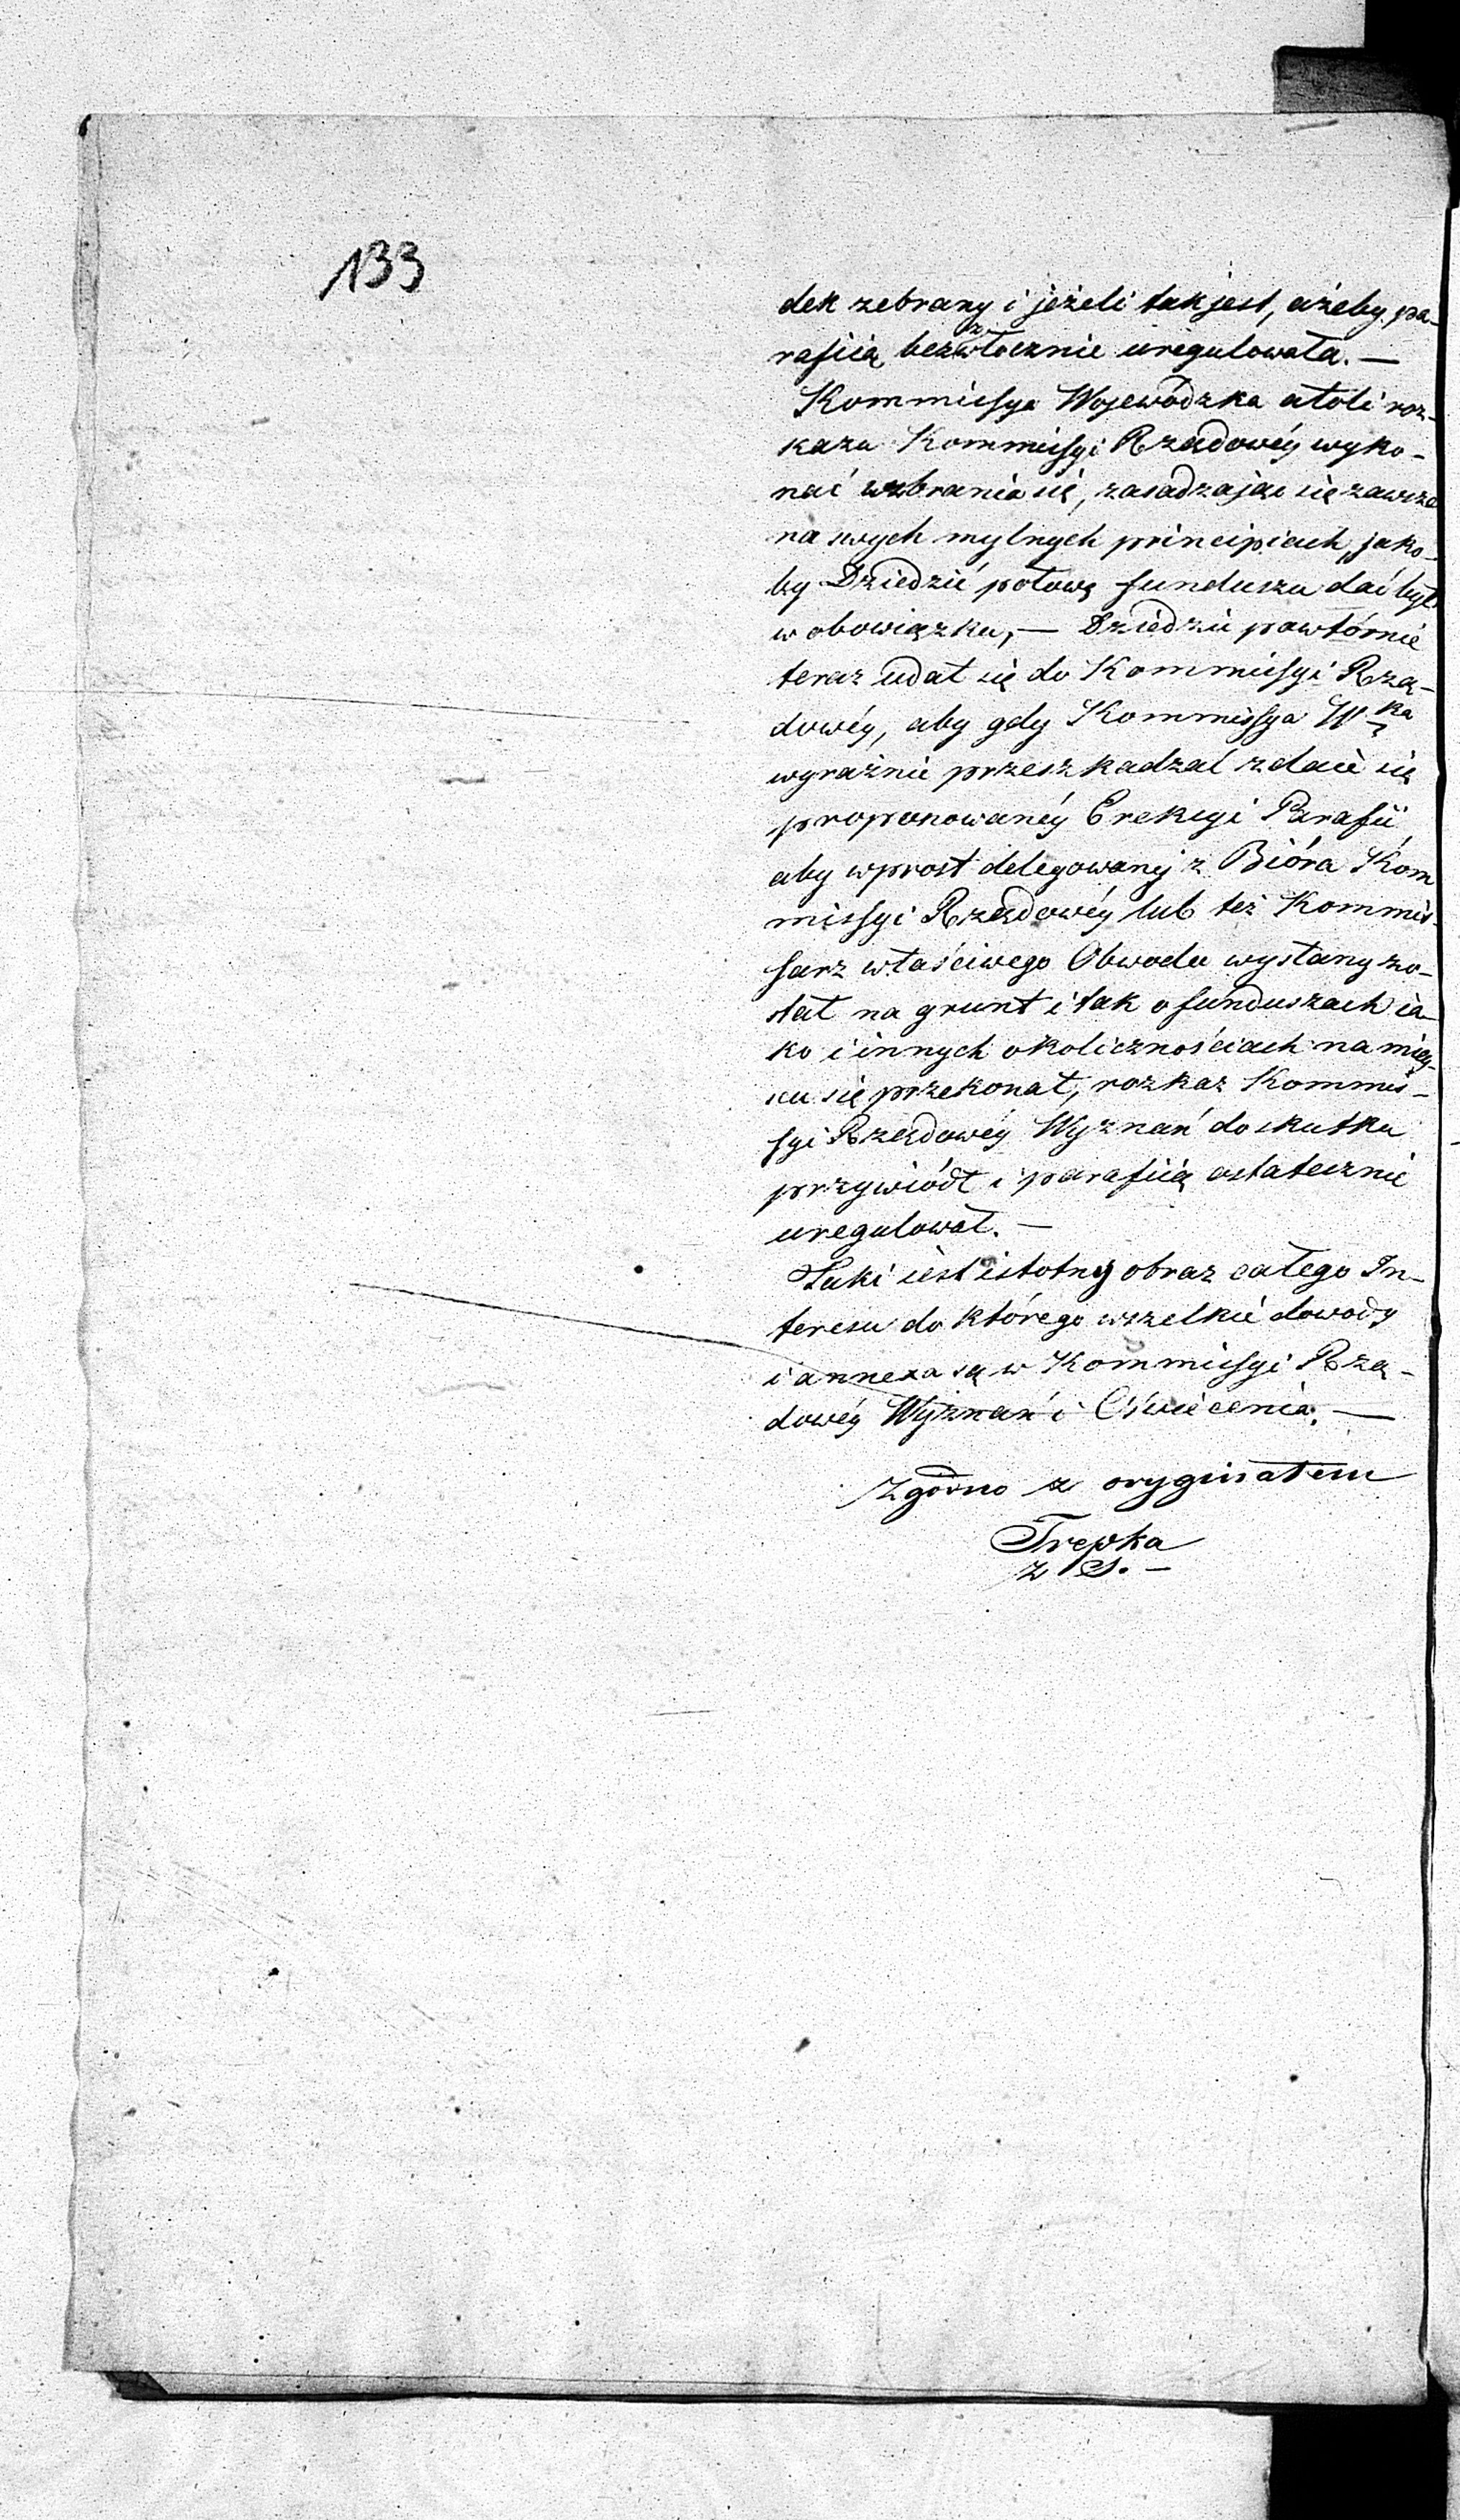 133
dek zebrany i jeżeli tak jest, ażeby pa-
rafiią bezzwłocznie uregulowała. —
Kommissya Wojewódzka atoli roz-
kazu Kommissyi Rządowéy wyko-
nać wzbrania się, zasadzając się zawsze
na swych mylnych principiach, jako-
by Dziedzic połowę funduszu dać był
w obowiązku, — Dziedzic powtórnie
teraz udał się do Kommissyi Rzą-
dowéy, aby gdy Kommissya W ka
wyraźnie przeszkadzać zdaie się
proponowanéy Erekcyi Parafii
aby wprost delegowany z Bióra Kom
missyi Rządowéy lub też Kommis-
sarz właściwego Obwodu wysłany zo-
stał na grunt i tak o funduszach ia-
ko i innych okolicznościach na miey-
scu się przekonał, rozkaz Kommis-
syi Rządowéy Wyznań do skutku
przywiódł i parafiią ostatecznie
uregulował. —
Taki iest istotny obraz całego In-
teresu do którego wszelkie dowody
i annexa są w Kommissyi Rzą-
dowéy Wyznań i Oświecenia. —
Zgodno z oryginałem
Trepka
z S. —